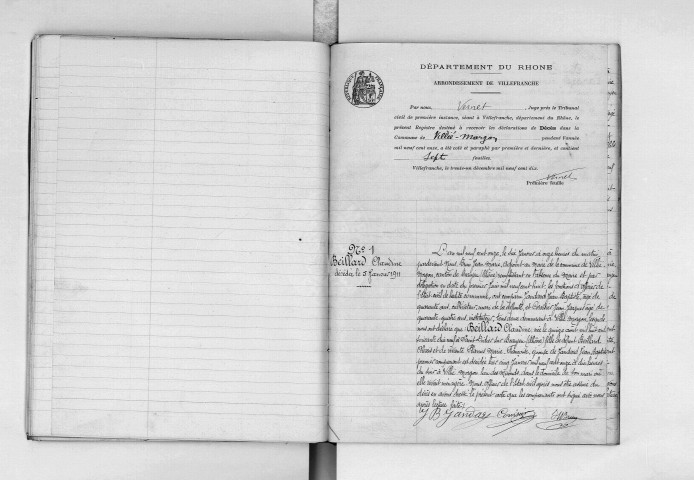 DÉPARTEMENT DU RHONE
ARRONDISSEMENT DE VILLEFRANCHE
Par nous, Verret, Juge près le Tribunal
civil de première instance, séant à Villefranche, département du Rhône, le
présent Registre destiné à recevoir les déclarations de Décès dans la
Commune de Villié-Morgon pendant l'année
mil neuf cent onze, a été coté et paraphé par première et dernière, et contient
Sept feuilles.
Villefranche, le trente-un décembre mil neuf cent dix.
Verret
Première feuille
No 1
Beillard Claudine
décédée le 5 Janvier 1911
L'an mil neuf cent onze, le six Janvier à onze heures du matin
pardevant Nous, Jean Marie, adjoint au maire de la commune de Villié
Morgon, canton de Beaujeu (Rhône) remplissant en l'absence du Maire et par
délégation en date du premier Juin mil neuf cent huit, les fonctions d'officier de
l'État civil de ladite commune, ont comparu Jandard Jean Baptiste, âgé de
quarante ans, cultivateur, de la défunte, et Jean Jacques âgé de
quarante quatre ans, instituteur, tous deux demeurant à Villié Morgon, lesquels
nous ont déclaré que Beillard Claudine née le quinze août mil huit cent
soixante dix neuf à Saint Didier sur Beaujeu (Rhône) fille de défunt Beillard
et de vivante Marie, épouse de Jandard Jean Baptiste
premier comparant est décédée hier cinq Janvier mil neuf cent onze à dix heures
du soir à Villié Morgon lieu des dans le domicile de son mari où
elle vivait ménagère. Nous officier de l'État civil après nous être assuré du
décès en avons dressé le présent acte que les comparants ont signé avec nous
après lecture faite.
J B Jandard